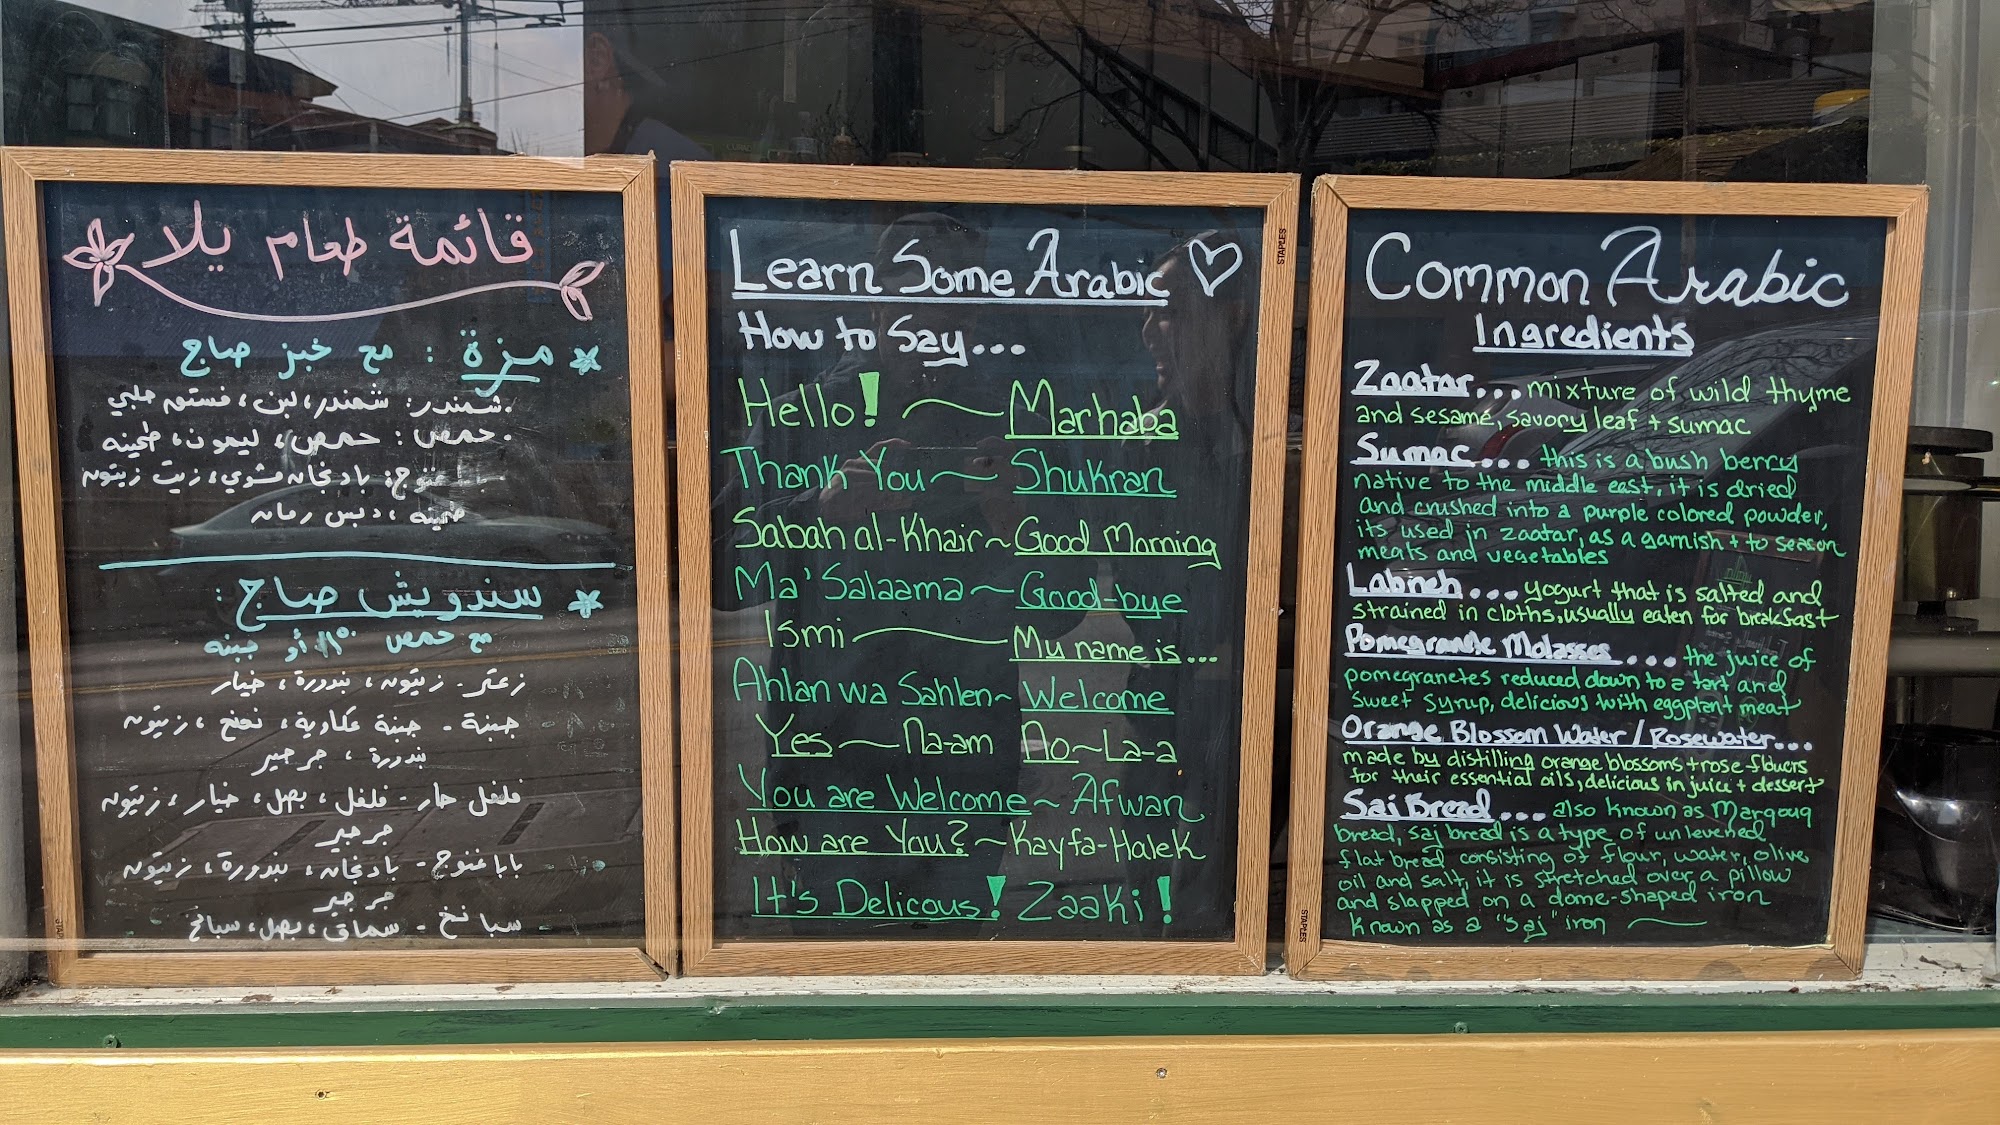 قائمة طعام يلا
مزة : مع خبز صاج
شمندر: شمندر، لبن، فستق حلبي
حمص: حمص، ليمون، طحينه
بابا غنوج: باذنجان مشوي، زيت زيتون
طحينه، دبس رمان
سندويش صاج :
مع حمص أو جبنه
زعتر - زيتون، بندورة، خيار
جبنة - جبنة عكاوية، نعنع، زيتون
بندورة، جرجير
فلفل حار - فلفل، بصل، خيار، زيتون
جرجير
بابا غنوج - باذنجان، بندورة، زيتون
جرجير
سبانخ - سماق، بصل، سبانخ
Learn Some Arabic
How to Say...
Hello! ~ Marhaba
Thank You ~ Shukran
Sabah al-Khair ~ Good Morning
Ma'Salaama ~ Good-bye
Ismi ~ My name is...
Ahlan wa Sahlen ~ Welcome
Yes ~ Na-am No ~ La-a
You are Welcome ~ Afwan
How are You? ~ Kayfa-Halek
It's Delicous! Zaaki!
STAPLES
Common Arabic
Ingredients
Zaatar... mixture of wild thyme
and sesame, savory leaf + sumac
Sumac... this is a bush berry
native to the middle east, it is dried
and crushed into a purple colored powder,
its used in zaatar, as a garnish + to season
meats and vegetables
Labneh... yogurt that is salted and
strained in cloths, usually eaten for breakfast
Pomegranate Molasses... the juice of
pomegranetes reduced down to a tart and
sweet syrup, delicious with eggplant meat
Orange Blossom Water/Rosewater...
made by distilling orange blossoms + rose flowers
for their essential oils, delicious in juice + dessert
Saj Bread... also known as Marqouq
bread, saj bread is a type of unlevened
flat bread consisting of flour, water, olive
oil and salt, it is stretched over a pillow
and slapped on a dome-shaped iron
known as a "saj" iron
STAPLES